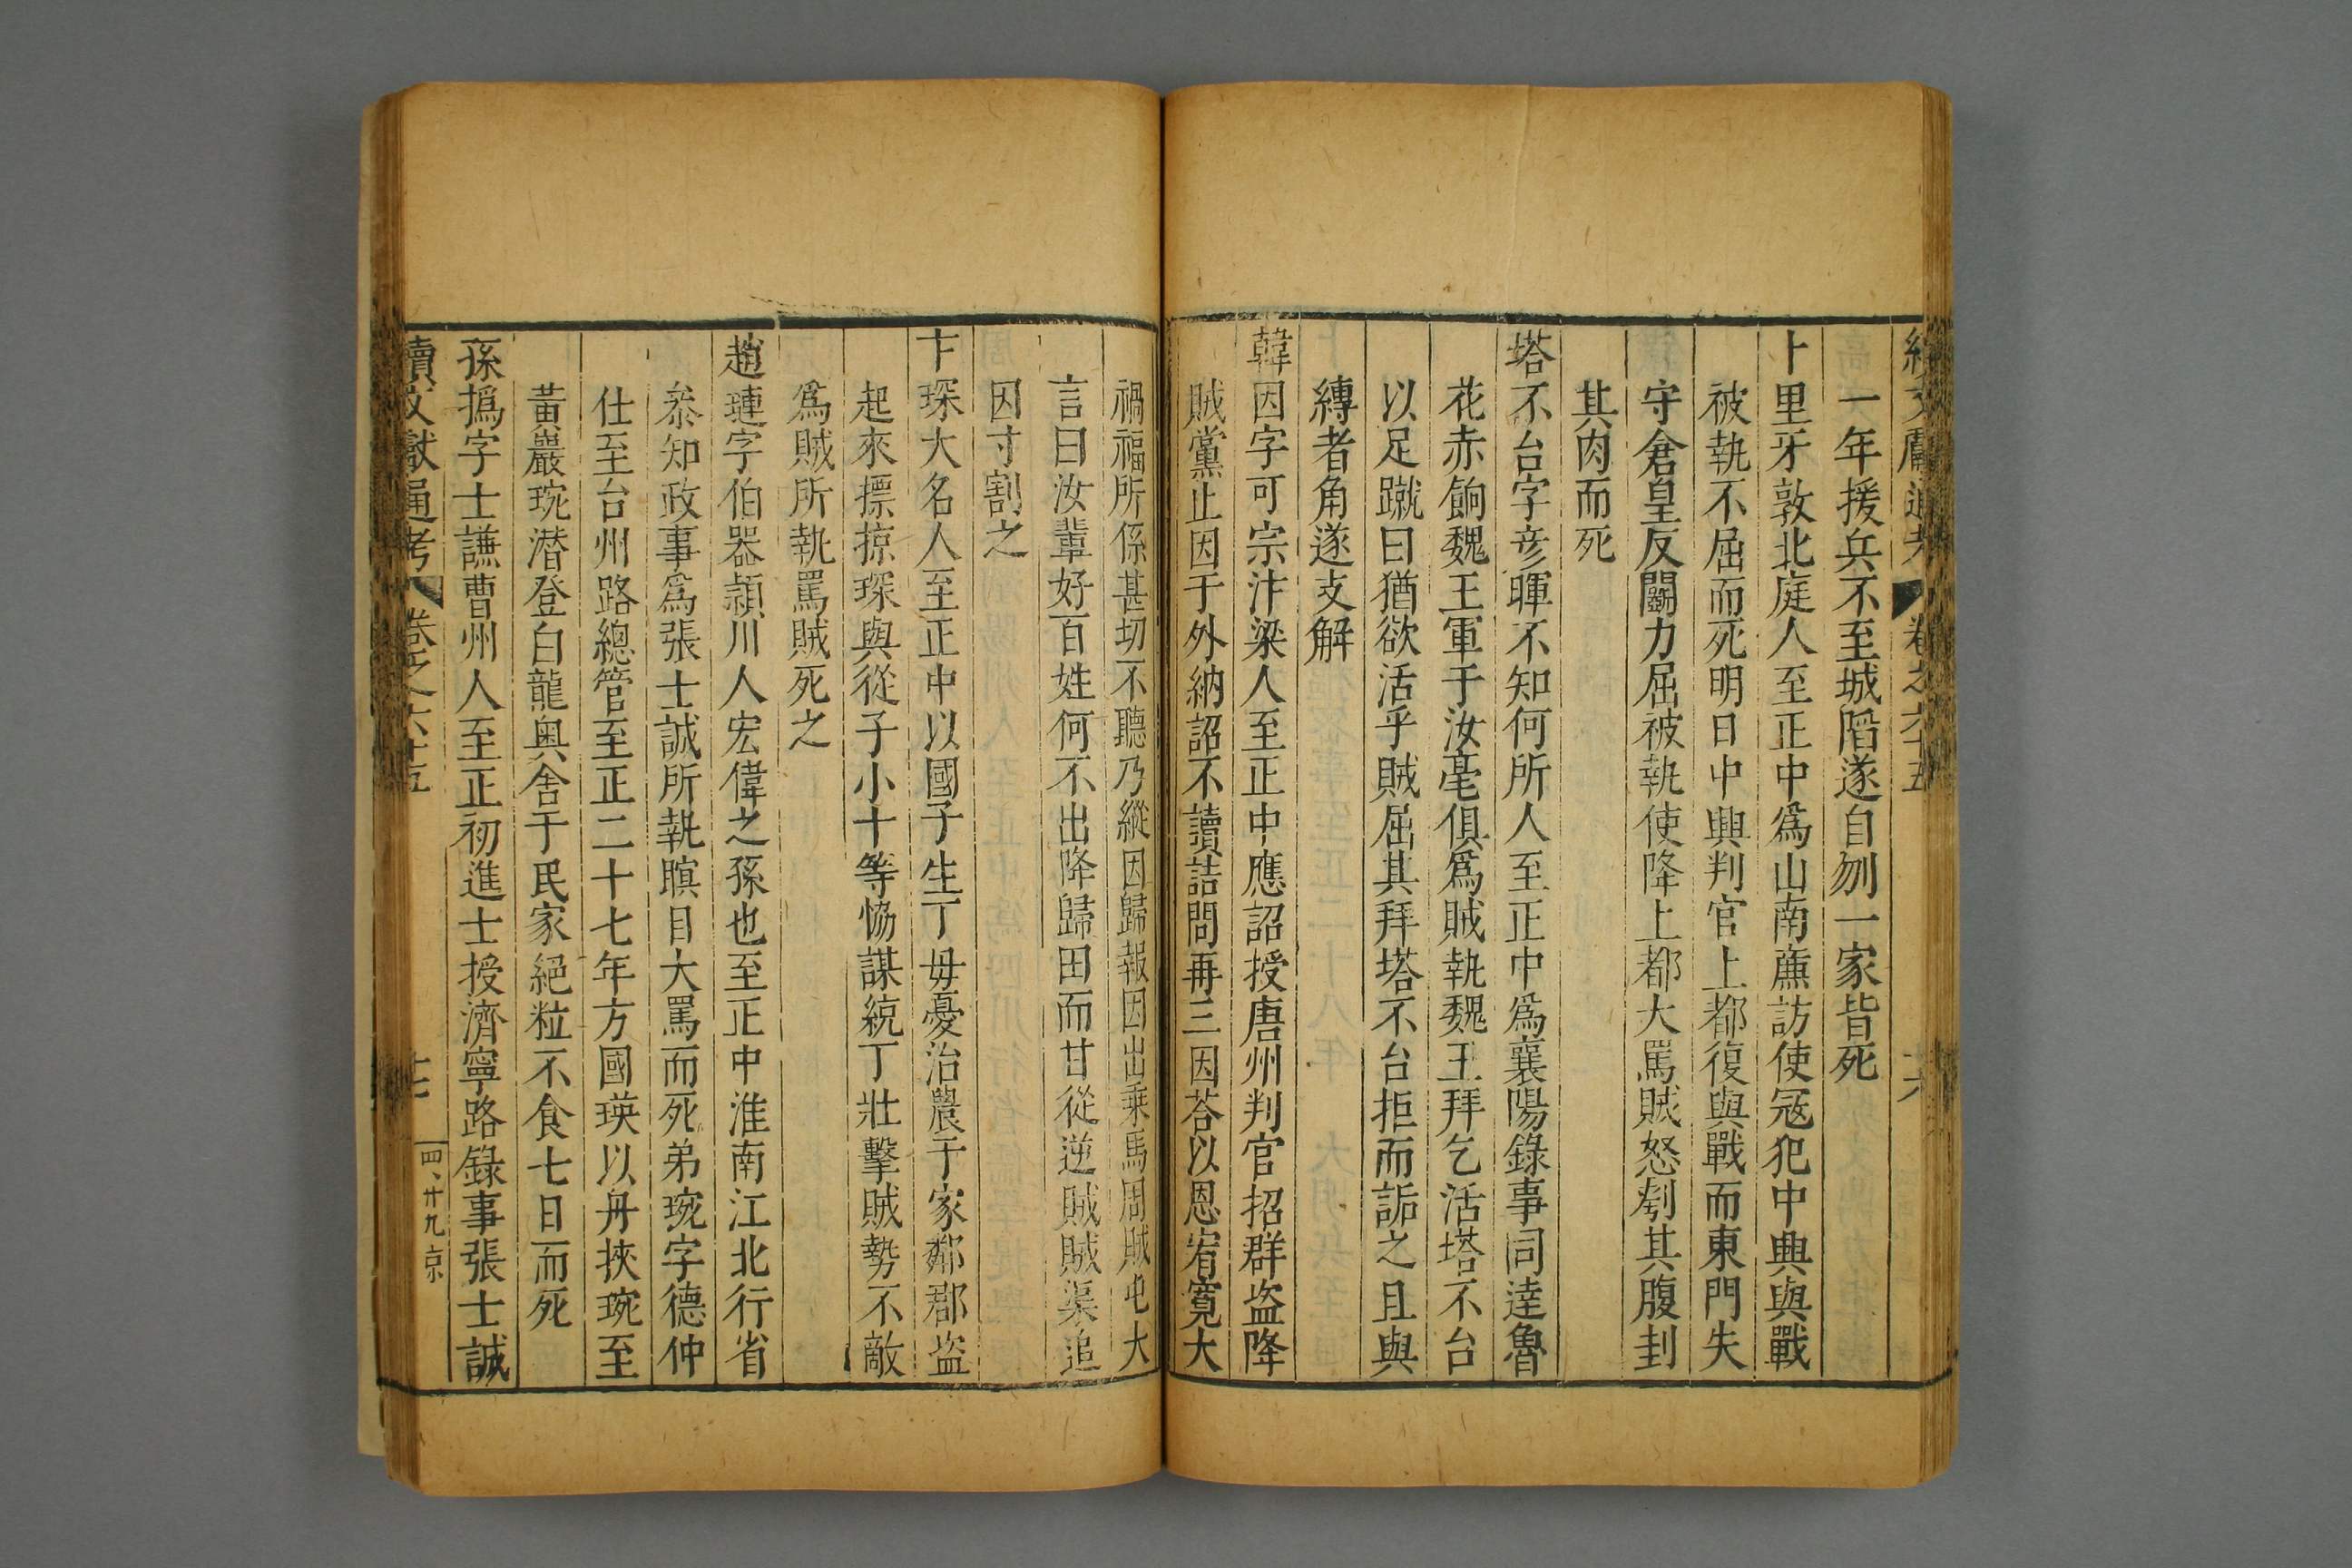 續文獻通考 卷之六十五 十六
一年援兵不至城陷遂自刎一家皆死
卜里牙敦北庭人至正中爲山南廉訪使冦犯中興與戰
被執不屈而死明日中興判官上都復與戰而東門失
守倉皇反鬬力屈被執使降上都大罵賊怒刳其腹刲
其肉而死
塔不台字彦暉不知何所人至正中爲襄陽錄事同逹魯
花赤餉魏王軍于汝亳俱爲賊執魏王拜乞活塔不台
以足蹴曰猶欲活乎賊屈其拜塔不台拒而詬之且與
縛者角遂支解
韓因字可宗汴梁人至正中應詔授唐州判官招群盗降
賊黨止因于外納詔不讀詰問再三因荅以恩宥寬大
禍福所係甚切不聽乃縱因歸報因出乗馬周賊屯大
言曰汝輩好百姓何不出降歸田而甘從逆賊賊渠追
因寸割之
卞琛大名人至正中以國子生丁毋憂治農于家鄰郡盗
起來摽掠琛與從子小十等恊謀統丁壯擊賊勢不敵
爲賊所執罵賊死之
趙璉字伯器頴川人宏偉之孫也至正中淮南江北行省
叅知政事爲張士誠所執瞋目大罵而死弟琬字德仲
仕至台州路總管至正二十七年方國瑛以舟挾琬至
黃巖琬潜登白龍奥舍于民家絕粒不食七日而死
孫撝字士謙曹州人至正初進士授濟寧路錄事張士誠
續文獻通考 卷之六十五 十七 四、廿九京